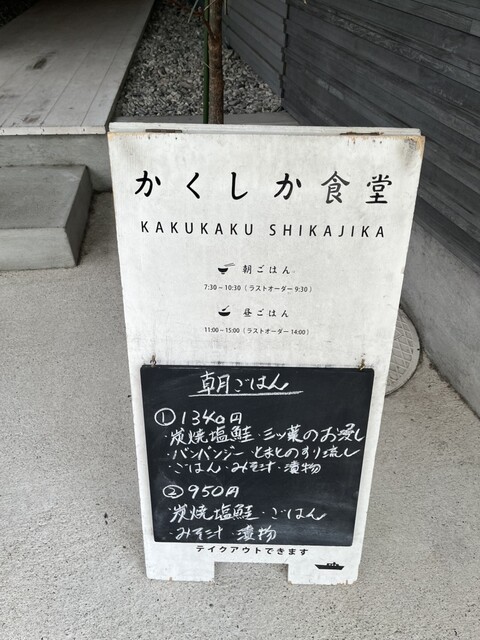 かくしか食堂
KAKUKAKU SHIKAJIKA
朝ごはん
7:30~10:30(ラストオーダー 9:30)
昼ごはん
11:00~15:00(ラストオーダー 14:00)
朝ごはん
①1340円
・炭焼塩鮭・三ッ葉のお浸し
・バンバンジー・とまとのすり流し
・ごはん・みそ汁・漬物
②950円
炭焼塩鮭・ごはん
・みそ汁・漬物
テイクアウトできます